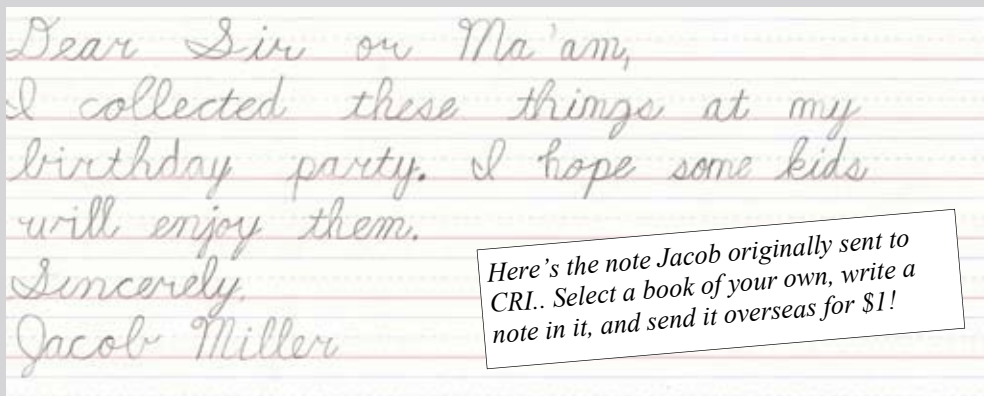 Dear Sir or Ma'am,
I collected these things at my
birthday party. I hope some kids
will enjoy them.
Sincerely,
Jacob Miller
Here's the note Jacob originally sent to
CRI.. Select a book of your own, write a
note in it, and send it overseas for $1!